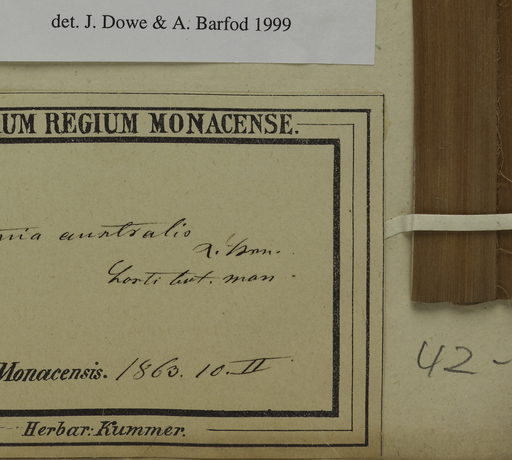 det. J. Dowe & A. Barfod 1999
UM REGIUM MONACENSE.
australis
horti bot. mon
Monacensis. 1863. 10. II
Herbar: Kummer.
42-